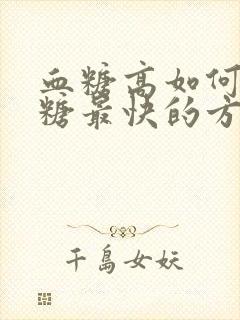 血糖高如何
糖最快的方
千岛女妖